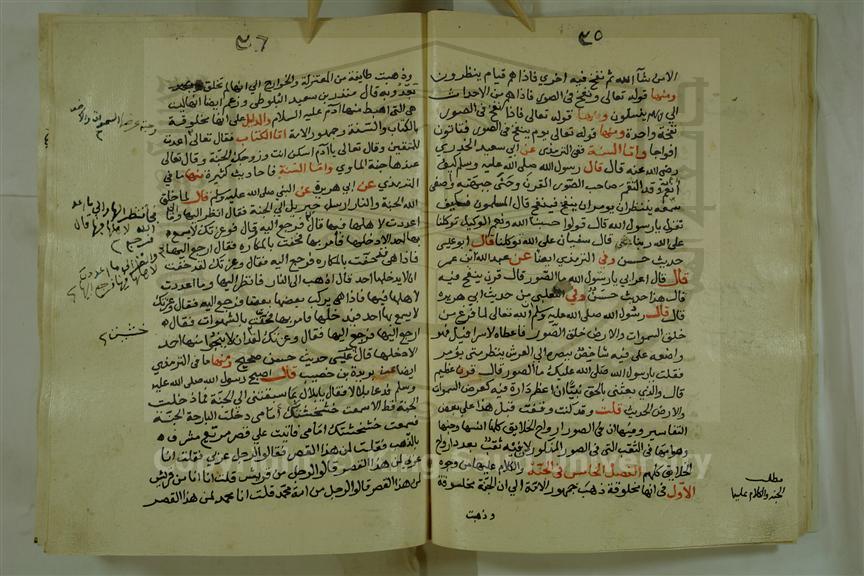 ٣٥
الا من شآ الله ثم نفخ فيه اخرى فاذا هم قيام ينظرون
ومنها قوله تعالى ونفخ في الصور فاذا هم من الاجداث
الى ربهم ينسلون ومنها قوله تعالى فاذا نفخ في الصور
نفخة واحدة ومنها قوله تعالى يوم ينفخ في الصور فتاتون
افواجا واما السنة ففي الترمذي عن ابي سعيد الخدري
رضي الله عنه قال قال رسول الله صلى الله عليه وسلم كيف
انعم وقد التقم صاحب الصور القرن وحنى جبهته واصغى
سمعه ينتظر ان يومر ان ينفخ فينفخ قال المسلمون فكيف
نقول يا رسول الله قال قولوا حسبنا الله ونعم الوكيل توكلنا
على الله ربنا قال سفيان على الله توكلنا قال ابو عيسى
حديث حسن وفي الترمذي ايضا عن عبد الله ابن عمر
قال قال اعرابي يا رسول الله ما الصور قال قرن ينفخ فيه
قال هذا حديث حسن وفي الثعلبي من حديث ابي هريرة
قال قال رسول الله صلى الله عليه وسلم ان الله تعالى لما فرغ من
خلق السموات والارض خلق الصور فاعطاه لاسرافيل فهو
واضعه على فيه شاخص ببصره الى العرش ينتظر متى يؤمر
فقلت يا رسول الله صلى الله عليك ما الصور قال قرن عظيم
قال والذي بعثني بالحق نبيا ان اعظم دارة فيه كعرض السموات
والارض الحديث قلت وقد كنت وقفت قبل هذا على بعض
التفاسير ومنها ان في الصور ارواح الخلايق كلها انسها وجنها
في الصور المذكور لانه ثقب بعدد ارواح
الخلايق كلهم الفصل الخامس في الجنة والكلام عليها من وجوه
الاول في انها مخلوقة ذهب جمهور الامة الى ان الجنة مخلوقة
وذهبت
مطلب
الجنة والكلام عليها
٣٦
وذهبت طايفة من المعتزلة والخوارج الى انها لم تخلق بعد
قال منذر بن سعيد البلوطي وزعم ايضا انها ليست
هي التي اهبط منها آدم عليه السلام والدليل على انها مخلوقة
بالكتاب والسنة وجمهور الامة اما الكتاب فقال تعالى اعدت
للمتقين وقال تعالى يا آدم اسكن انت وزوجك الجنة وقال تعالى
عندها جنة الماوى واما السنة فاحاديث كثيرة منها ما في
الترمذي عن ابي هريرة عن النبي صلى الله عليه وسلم قال لما خلق
الله الجنة والنار ارسل جبريل الى الجنة فقال انظر اليها وما
اعددت لاهلها فيها قال فرجع اليه قال فوعزتك لا يسمع
بها احد الا دخلها فامر بها فحفت بالمكاره فقال ارجع اليها
فاذا هي قد حفت بالمكاره فرجع اليه فقال وعزتك لقد خفت
ان لا يدخلها احد قال اذهب الى النار فانظر اليها وما اعددت
لاهلها فيها فاذا هي يركب بعضها بعضا فرجع اليه فقال وعزتك
لا يسمع بها احد فيدخلها فامر بها فحفت بالشهوات فقال
ارجع اليها فرجع اليها فقال وعزتك لقد ان لا ينجو منها احد
الا دخلها قال عيسى حديث حسن صحيح ومنها ما في الترمذي
ايضا عن بريدة بن حصيب قال اصبح رسول الله صلى الله عليه
وسلم فدعا بلالا فقال يا بلال بما سبقتني الى الجنة فما دخلت
الجنة قط الا سمعت خشخشتك أمامي دخلت البارحة الجنة
فسمعت خشخشتك امامي فاتيت على قصر مربع مشرف
بالذهب فقلت لمن هذا القصر فقالوا لرجل عربي فقلت انا
عربي لمن هذا القصر قالوا لرجل من قريش قلت انا من قريش
لمن هذا القصر قالوا لرجل من امة محمد قلت انا محمد لمن هذا القصر
خشيت
Copyright © King Saud University